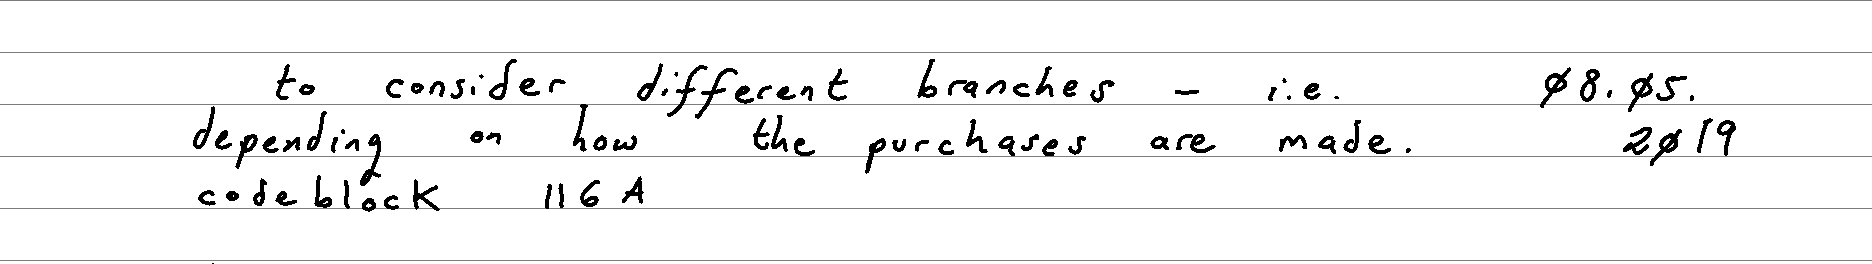 to consider different branches - i.e. 08.05.
depending on how the purchases are made. 2019
codeblock 116A